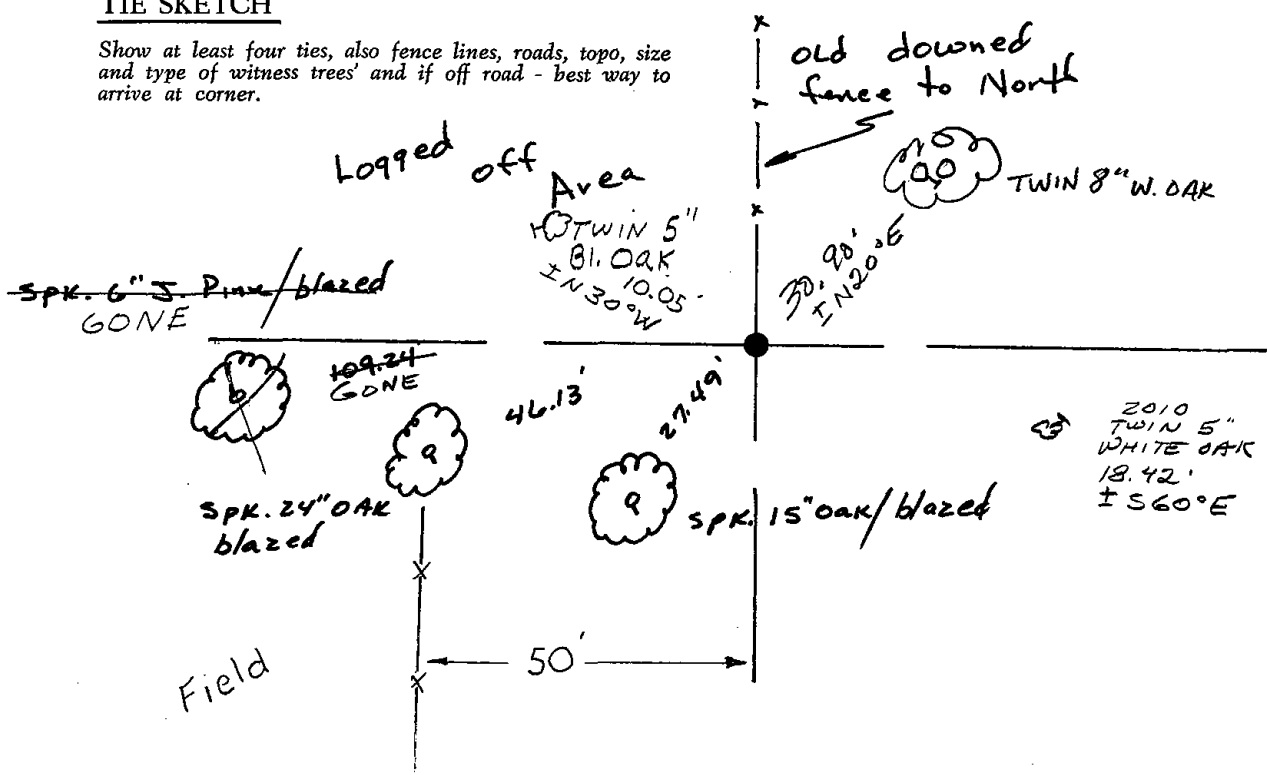 TIE SKETCH
Show at least four ties, also fence lines, roads, topo, size
and type of witness trees' and if off road - best way to
arrive at corner.
old downed
fence to North
Logged off Area
TWIN 8" W. OAK
TWIN 5"
Bl. Oak
10.05'
± N30°W
30.90'
± N20°E
Spk. 6" J. Pine/blazed
GONE
109.24
GONE
46.13'
27.49'
2010
TWIN 5"
WHITE OAK
18.42'
± S60°E
Spk. 24" OAK
blazed
spk. 15" Oak/blazed
50'
Field